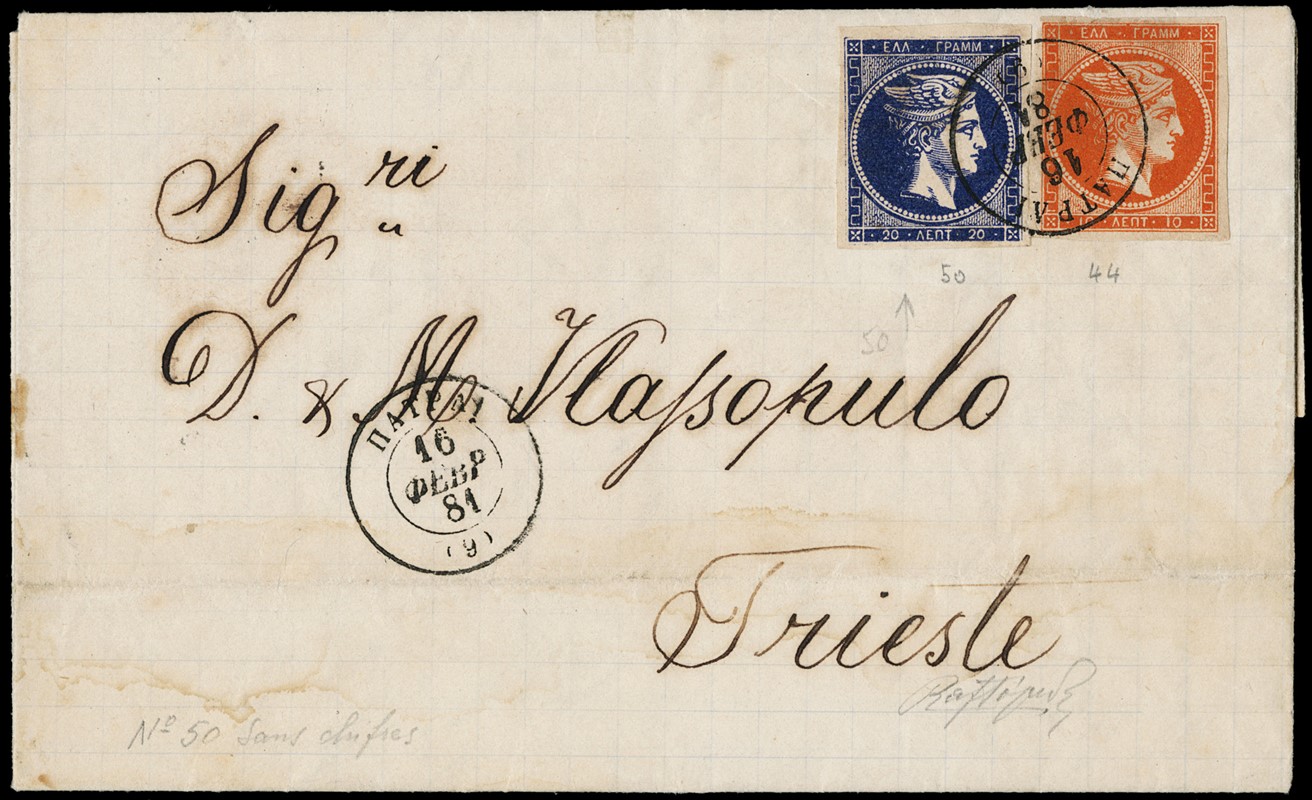 ΕΛΛ · ΓΡΑΜΜ
20 · ΛΕΠΤ · 20
ΕΛΛ · ΓΡΑΜΜ
10 · ΛΕΠΤ · 10
ΠΑΤΡΑΙ
16
ΦΕΒΡ
81
(9)
50
44
50
Sig ri
"
D. & M.
ΠΑΤΡΑΙ
16
ΦΕΒΡ
81
(9)
Trieste
Nº 50 Sans chifres